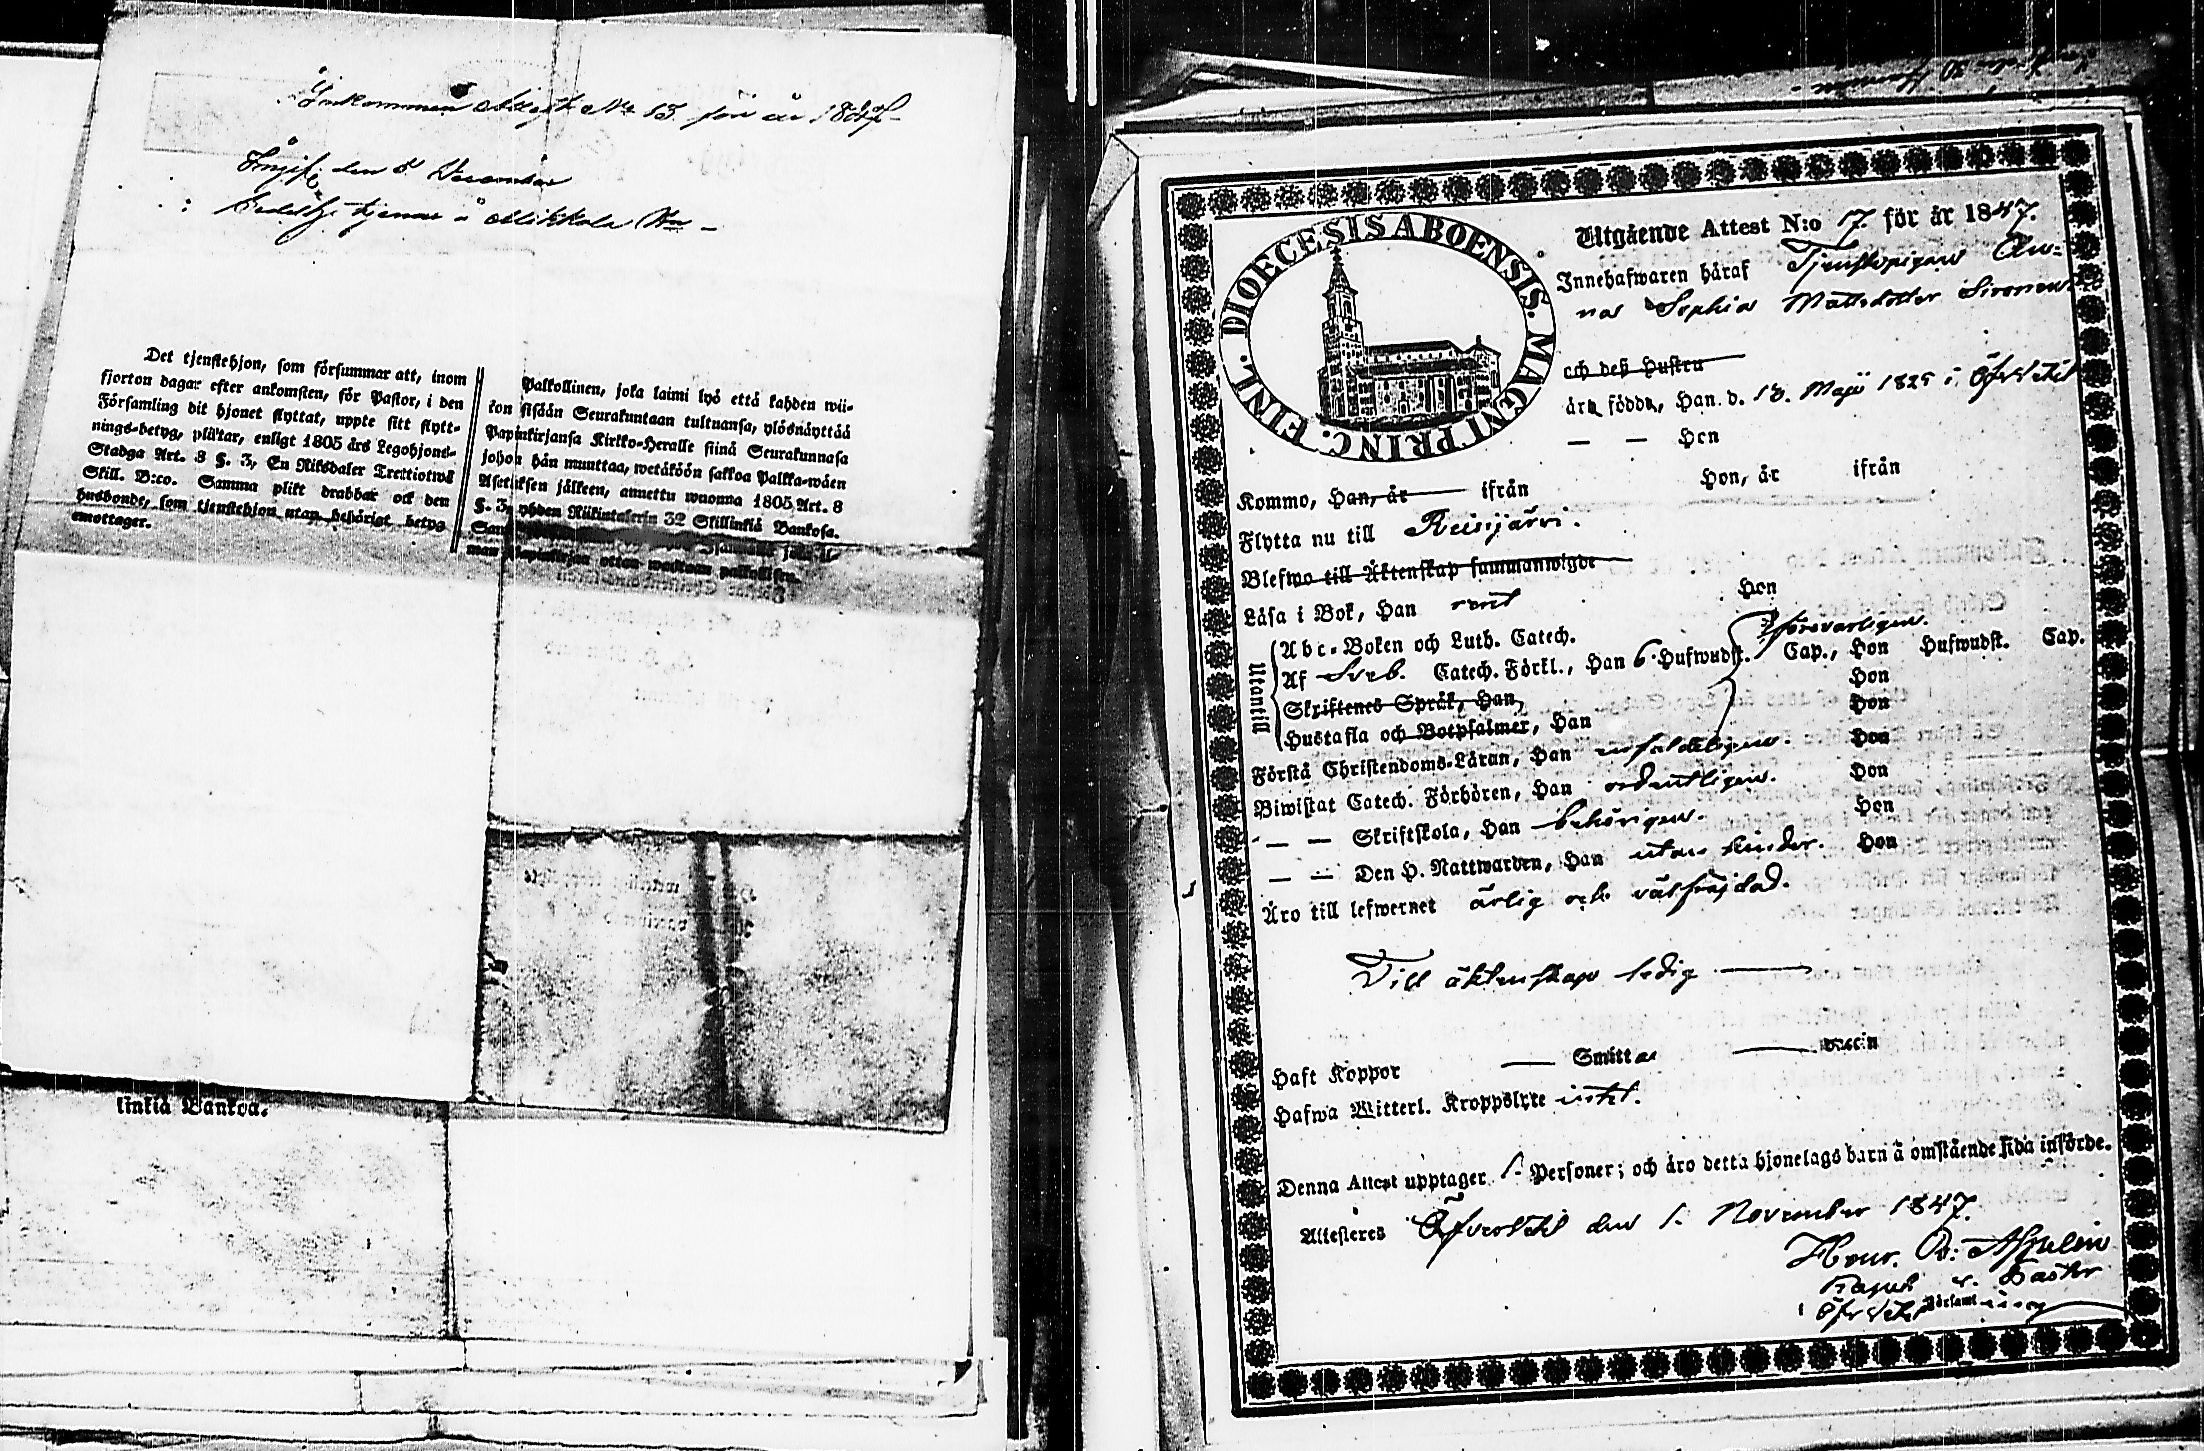 Inkommen Attest No 13 för år 1847
den 8 December
tjenar å Mikkola
Det tjenstehjon, som försummar att, inom
fjorton dagar efter ankomsten, för Pastor, i den
Församling dit hjonet flyttat, uppte sitt flytt-
nings-betyg, plictar, enligt 1805 års Legohjons-
Stadga Art. 8 §. 3, En Riksdaler Trettiotwå
Skill. B:co. Samma plikt drabbar ock den
husbonde, som tjenstehjon utan behörigt betyg
emottager.
Palkollinen, joka laimi lyö että kahden wii-
kon sisään Seurakuntaan tultuansa, ylösnäyttää
Papinkirjansa Kirkko-Heralle siinä Seurakunnasa
johon hän muuttaa, wetäköön sakkoa Palkka-wäen
Asetuksen jälkeen, annettu wuonna 1805 Art. 8
§. 3, yhden Riikintalerin 32 Skillinkiä Bankosa.
man Papinkirjaa ottaa wastaan palkollisen.
linkiä Bankoa.
DIOECESIS ABOENSIS. MAGNI PRINC. FINL.
Utgående Attest N:o 17. för år 1847.
Innehafwaren häraf Tjenstepigan An-
na Sophia Mattsdotter Sironen
och dess Hustru
äro födde, Han d. 13. Maji 1825 i Öfvervetil
— — Hon
Kommo, Han, år ifrån Hon, år ifrån
Flytta nu till Reisjärvi.
Blefwo till Äktenskap sammanwigde
Läsa i Bok, Han rent Hon
Utantill
Abc-Boken och Luth. Catech. försvarligen.
Af Sveb. Catech. Förkl., Han 6. Hufwudst. Cap., Hon Hufwudst. Cap.
Skriftenes Språk, Han Hon
Hustafla och Botpsalmer, Han Hon
Förstå Christendoms-Läran, Han enfaldeligen. Hon
Biwistat Catech. Förhören, Han ordentligen. Hon
— — Skriftskola, Han behörigen. Hon
— — Den H. Nattwarden, Han utan hinder. Hon
Äro till lefwernet ärlig och välfrejdad.
Till äktenskap ledig
Haft Koppor — Smitta — Vaccin
Hafwa Witterl. Kroppslyte intet.
Denna Attest upptager 1. Personer; och äro detta hjonelags barn å omstående sida införde.
Attesteres Öfvervetil den 1. November 1847.
Henr. A: Aspelin
Kapell. v. Pastor
i Öfvervetil Församling